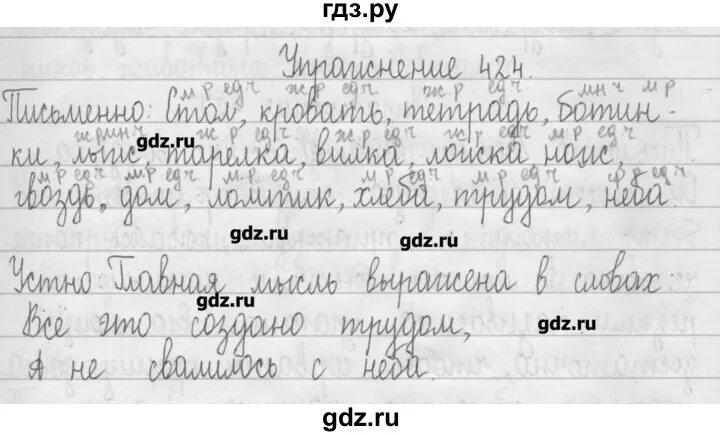 гдз.ру
Упражнение 424.
м р ед ч ж р ед ч ж р ед ч мн ч м р
Письменно: Стол, кровать, тетрадь, ботин-
ж р мн ч ж р ед ч ж р ед ч ж р ед ч м р ед ч
ки, лыж, тарелка, вилка, ложка, нож,
gdz.ru
м р ед ч м р ед ч м р ед ч м р ед ч м р ед ч ед ч
гвоздь, дом, ломтик, хлеба, трудом, неба
gdz.ru gdz.ru
Устно Главная мысль выражена в словах:
gdz.ru
Всё это создано трудом,
А не свалилось с неба.
gdz.ru gdz.ru